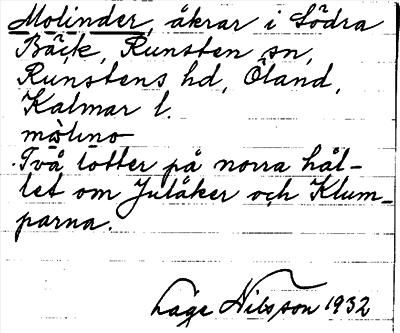 Molinder, åkrar i Södra
Bäck, Runsten sn,
Runstens hd, Öland,
Kalmar l.
mòlıno
Två lotter på norra hål-
let om Julåker och Klum-
parna.
Lage Nilsson 1932